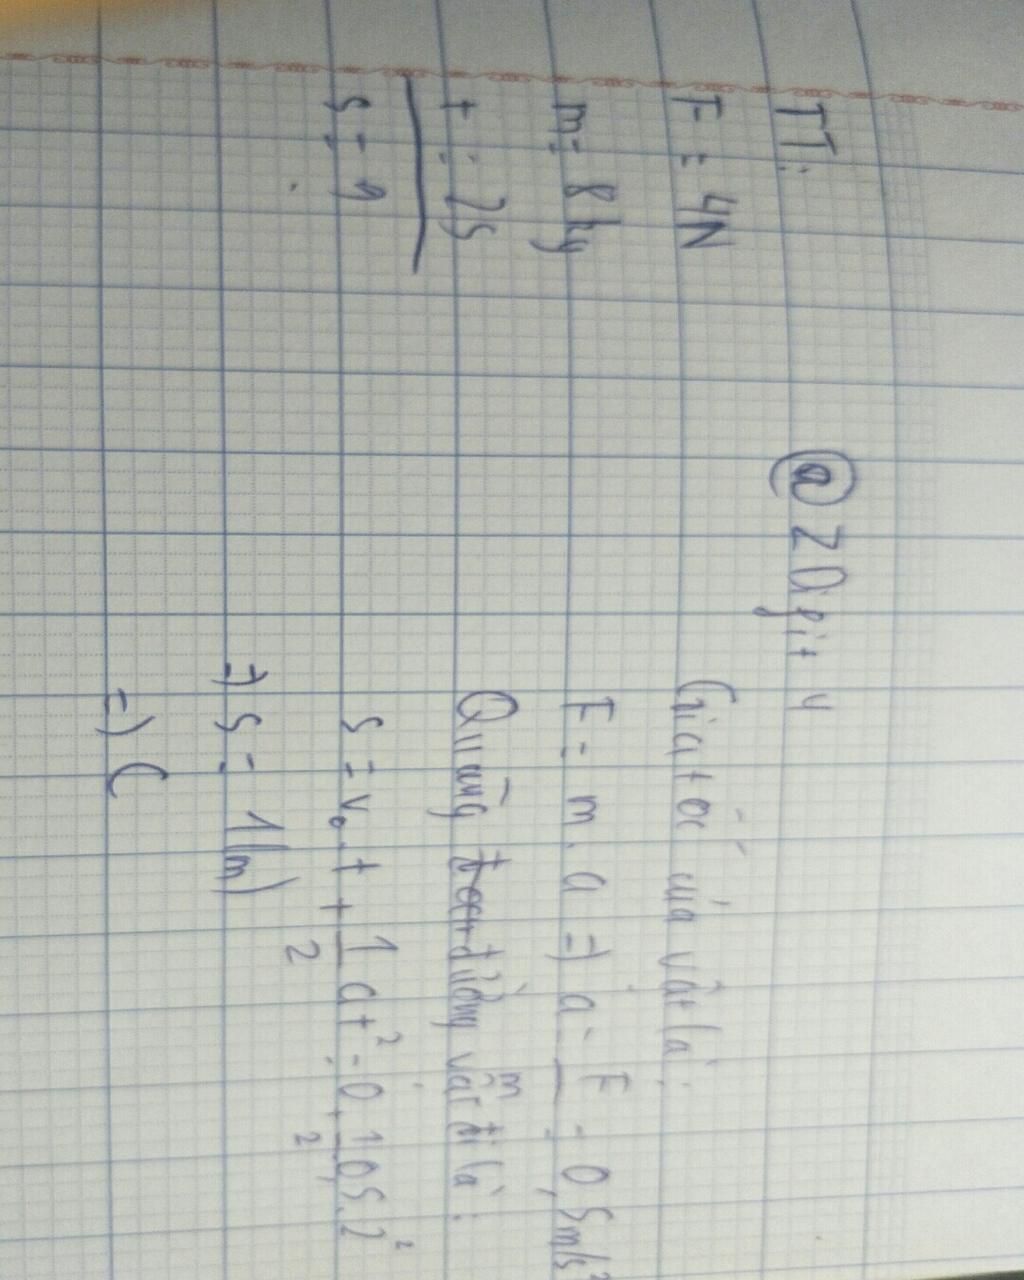 TT:
F = 4N
m = 8 kg
t = 2s
s = ?
@ZDigit
Gia tốc của vật là:
F = m.a => a = F/m = 0,5m/s²
Quãng đường vật đi là:
s = v₀.t + 1/2 at² = 0 + 1/2 . 0,5.2²
=> s = 1(m)
=> C